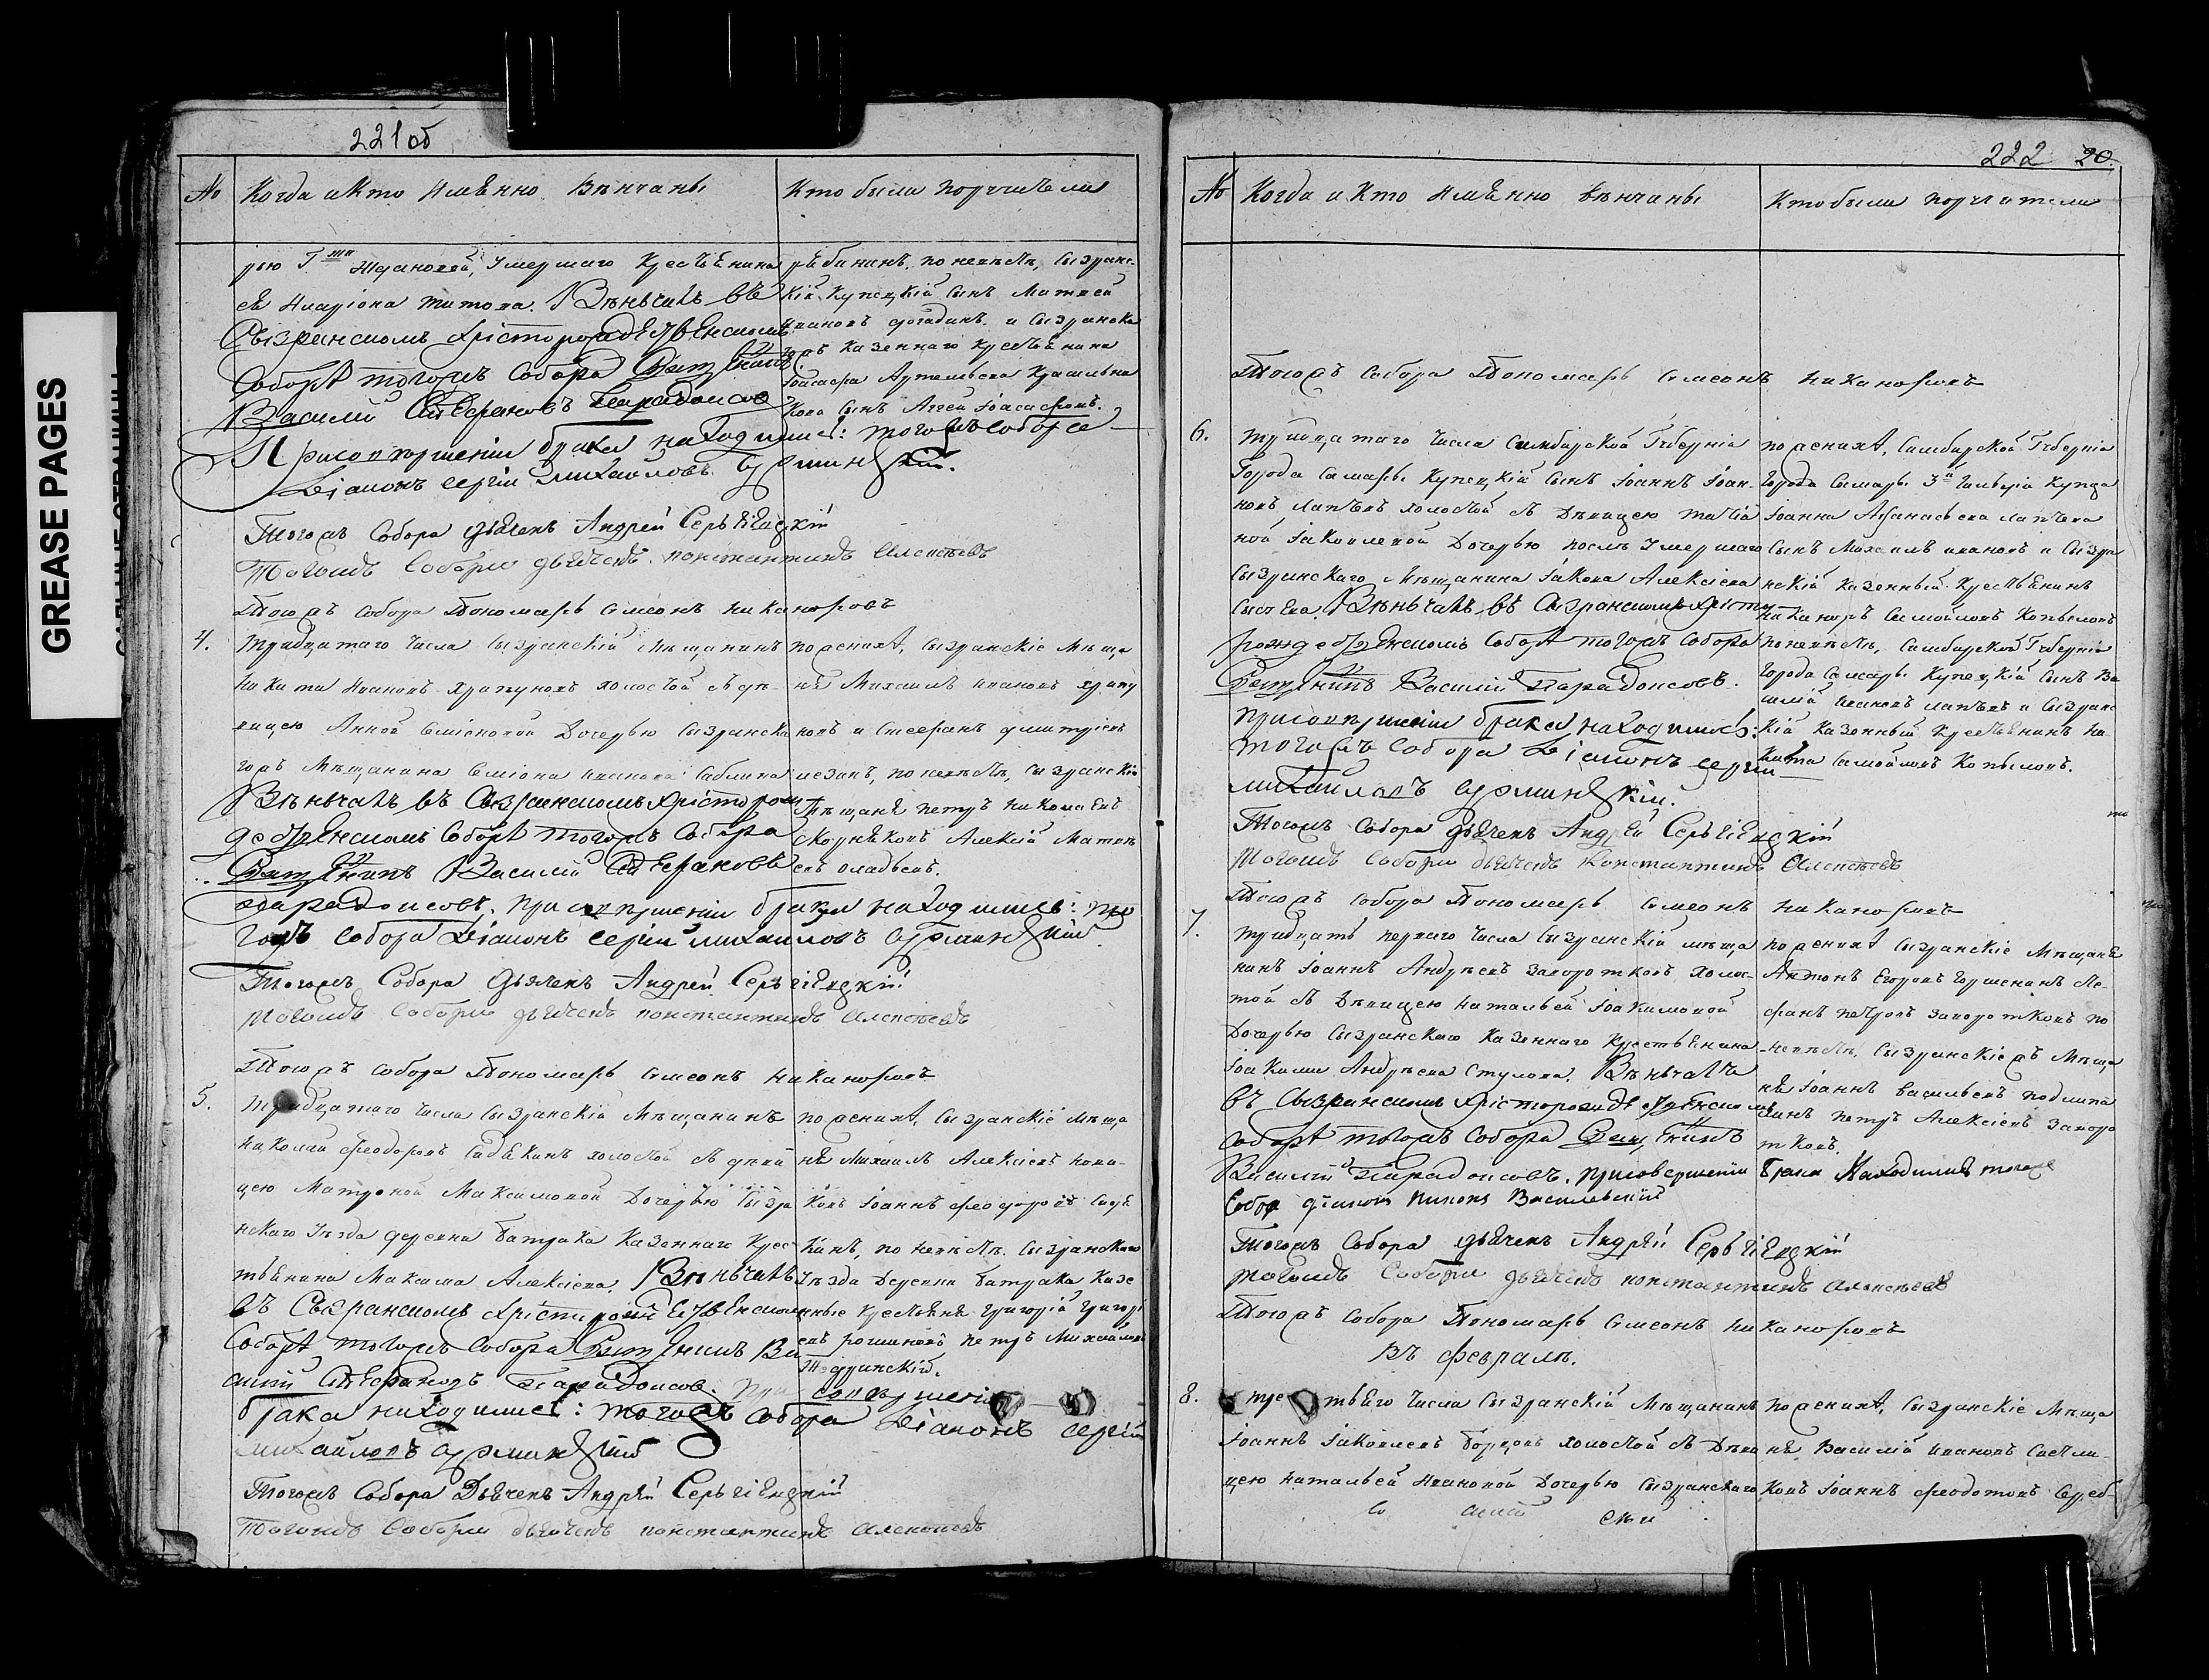 GREASE PAGES
221 об
№ Когда и Кто Имѣнно Вѣнчаны
Кто были поручители
рью Умершаго
Иларіона Титова. Вѣньчалъ въ
Сызранскомъ Христорождественскомъ
Соборѣ тогожъ Собора Священникъ
Василій Стефановъ Парадоксовъ
При совершеніи брака находились: тогожъ собора
Діаконъ Сергій Михайловъ
Тогожъ Собора дьячекъ Андрей Сергіевскій
Тогожъ Собора дьячекъ Константинъ Алексѣевъ
Тогожъ Собора Пономарь Симеонъ Никаноровъ
по невѣстѣ, Сызранс-
кій Купецкій Сынъ Матвей
Ивановъ и Сызранска
гожъ Казеннаго Крестьянина
Кова Сынъ Аггей Іоасафовъ.
4. Тридцатаго Числа Сызранскій Мѣщанинъ
Никита Ивановъ Храпуновъ холостой съ дѣ-
вицею Анной Симіоновой Дочерью Сызранска
гожъ Мѣщанина Симіона Иванова Саблина
Вѣньчалъ въ Сызранскомъ Христорож
дественскомъ Соборѣ тогожъ Собора
Священникъ Василій Стефановъ
Парадоксовъ. При совершеніи брака находились: то
гожъ Собора Діаконъ Сергій Михайловъ
Тогожъ Собора Дьячекъ Андрей Сергіевскій
Тогожъ Собора дьячекъ Константинъ Алексѣевъ
Тогожъ Собора Пономарь Симеонъ Никаноровъ
по женихѣ, Сызранскіе Мѣща
не Михаилъ Ивановъ Храпу
новъ и Стефанъ Димитріевъ
по невѣстѣ, Сызранскіе
Мѣщане Петръ Николаевъ
Скорняковъ Алексій Матвѣ
евъ
5. Тридцатаго Числа Сызранскій Мѣщанинъ
Николай Феодоровъ Сидякинъ холостой съ дѣви
цею Матроной Максимовой Дочерью Сызра
нскаго Уѣзда деревни Батрака Казеннаго Крес-
тьянина Максима Алексіева. Вѣньчалъ
въ Сызранскомъ Христорождественскомъ
Соборѣ тогожъ Собора Священникъ Ва
силій Стефановъ Парадоксовъ. При совершеніи
брака находились: тогожъ Собора Діаконъ Сергій
Михайловъ
Тогожъ Собора Дьячекъ Андрей Сергіевскій
Тогожъ Собора дьячекъ Константинъ Алексѣевъ
по женихѣ, Сызранскіе Мѣща
не Михаилъ Алексіевъ Нови-
ковъ Іоаннъ Феодоровъ Сидя
кинъ, по невѣстѣ, Сызранскаго
Уѣзда Деревни Батрака Казе
нные Крестьяне Григорій Григорі
евъ Петръ Михайловъ
222 20.
№ Когда и Кто Имѣнно Вѣнчаны
Кто были поручители
Тогожъ Собора Пономарь Симеонъ Никаноровъ
6. Тридцатаго Числа Симбирской Губерніи
Города Самары Купецкій Сынъ Іоаннъ Іоан-
новъ Лаптевъ холостой съ Дѣвицею Татіа
ной Іаковлевой Дочерью послѣ Умершаго
Сызранскаго Мѣщанина Іакова Алексіева
Сысоева. Вѣньчалъ въ Сызранскомъ Христо
рождественскомъ Соборѣ тогожъ Собора
Священникъ Василій Парадоксовъ.
При совершеніи брака находились:
тогожъ Собора Діаконъ Сергій
Михайловъ
Тогожъ Собора дьячекъ Андрей Сергіевскій
Тогожъ Собора дьячекъ Константинъ Алексѣевъ
Тогожъ Собора Пономарь Симеонъ Никаноровъ
по женихѣ, Симбирской Губерніи
Города Самары 3й Гильдіи Купца
Іоанна Афанасьева Лаптева
Сынъ Михаилъ Ивановъ и Сызра
нскій Казенный Крестьянинъ
Никаноръ Самойловъ Копыловъ
по невѣстѣ, Симбирской Губерніи
Города Самары Купецкій Сынъ Ва
силій Ивановъ Лаптевъ и Сызранс
кій Казенный Крестьянинъ Ни
кита Самойловъ Копыловъ.
7. Тридцать перваго Числа Сызранскій мѣща
нинъ Іоаннъ Андрѣевъ Заворотковъ холос-
той съ Дѣвицею Натальей Іоакимовой
Дочерью Сызранскаго Казеннаго Крестьянина
Іоакима Андрѣева Стулова. Вѣньчалъ
въ Сызранскомъ Христорождественскомъ
Соборѣ тогожъ Собора Священникъ
Василій Парадоксовъ. При совершеніи брака находились тогожъ
Собора Діаконъ Василевскій
Тогожъ Собора дьячекъ Андрей Сергіевскій
Тогожъ Собора дьячекъ Константинъ Алексѣевъ
Тогожъ Собора Пономарь Симеонъ Никаноровъ
по женихѣ Сызранскіе Мѣщане
Антонъ Егоровъ Сте-
фанъ Петровъ Заворотковъ по
невѣстѣ, Сызранскіежъ Мѣща
не Іоаннъ Васильевъ
Петръ Алексіевъ Заворо
тковъ.
Въ Февралѣ.
8. Третьяго Числа Сызранскій Мѣщанинъ
Іоаннъ Іаковлевъ Борцовъ холостой съ Дѣви
цею Натальей Ивановой Дочерью Сызранскаго
по женихѣ, Сызранскіе Мѣща
не Василій Ивановъ
ковъ Іоаннъ Федотовъ Сереб-